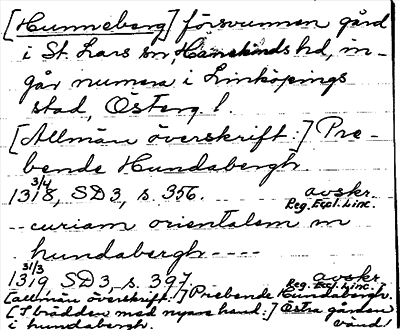 [Hunneberg] försvunnen gård
i St. Lars sn, Hanekinds hd, in-
går numera i Linköpings
stad, Österg l.
[Allmän överskrift:] Pre-
bende Hundabergh
1318 3/4, SD 3, s. 356. avskr.
Reg. Eccl. Linc.
-- curiam orientalem in
hundabergh ----
1319 31/3, SD 3, s. 397. avskr.
Reg. Eccl. Linc.
[allmän överskrift:] Prebende Hundabergh.
[I brädden med nyare hand:] Östra gården
i hundabergh. Vänd!